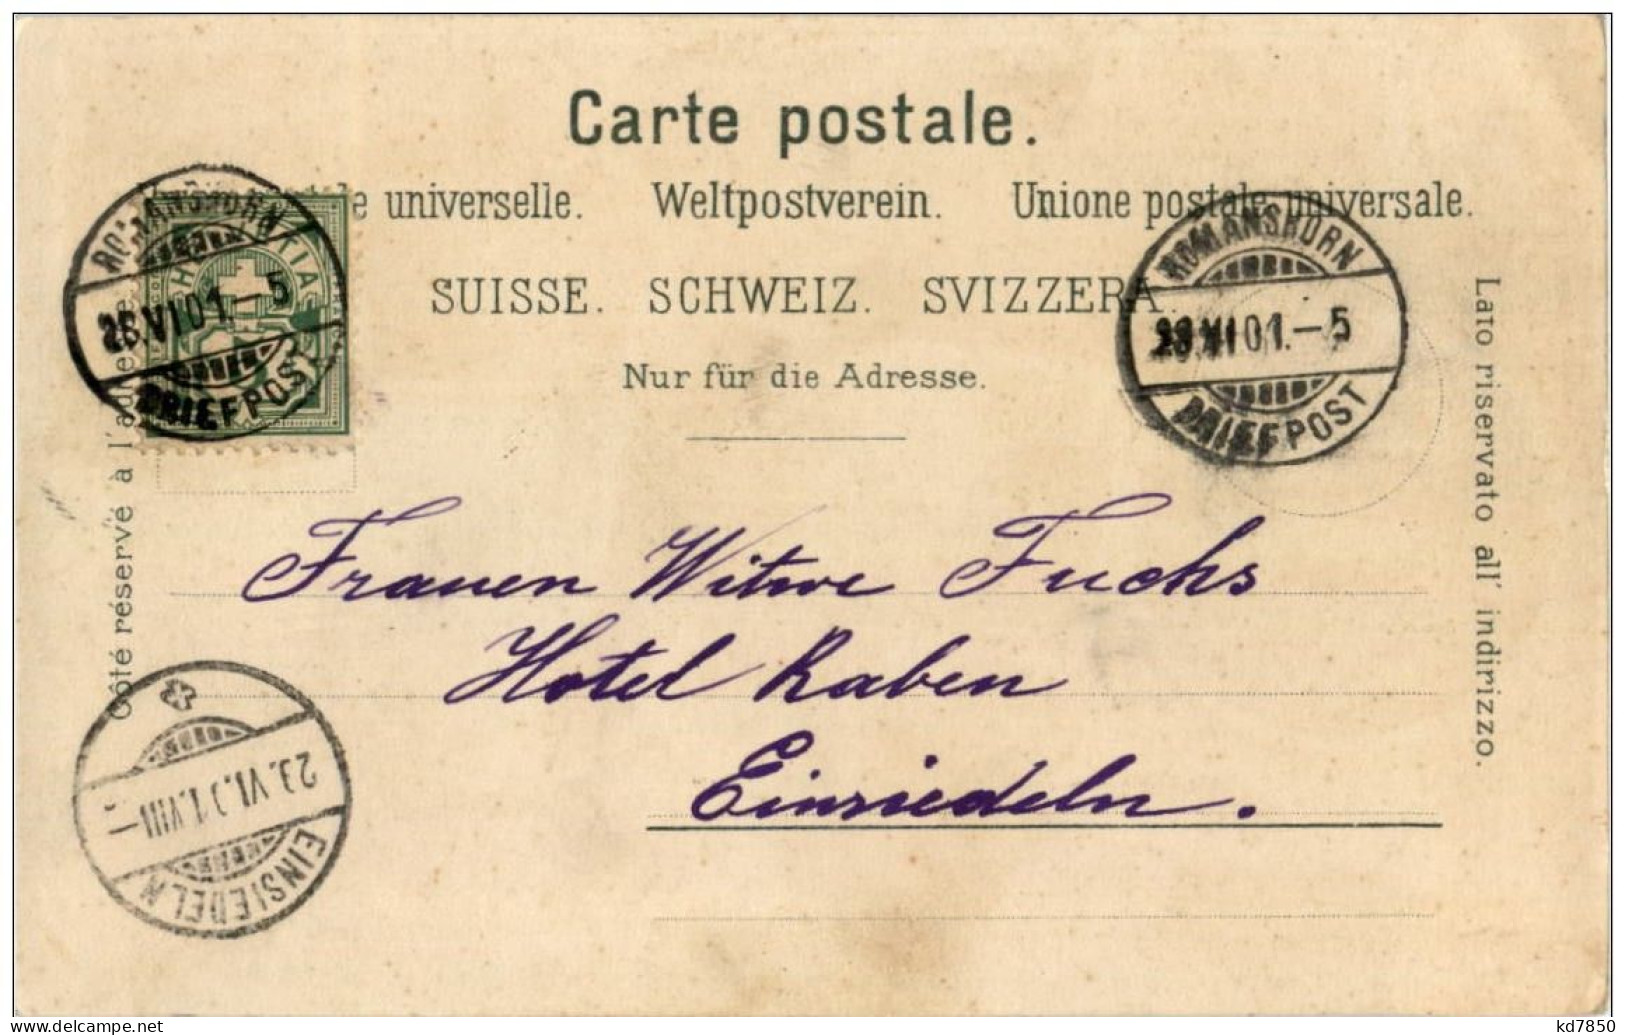 Carte postale.
e universelle. Weltpostverein. Unione postale universale.
SUISSE. SCHWEIZ. SVIZZERA.
Nur für die Adresse.
ROMANSHORN
VI 01.–5
BRIEFPOST
HTIA
ROMANSHORN
VI 01.–5
BRIEFPOST
Côté réservé à l'adresse
Lato riservato all' indirizzo.
Frauen Witwe Fuchs
Hotel Raben
Einsiedeln.
23.VI.01.VIII–
EINSIEDELN
kd7850